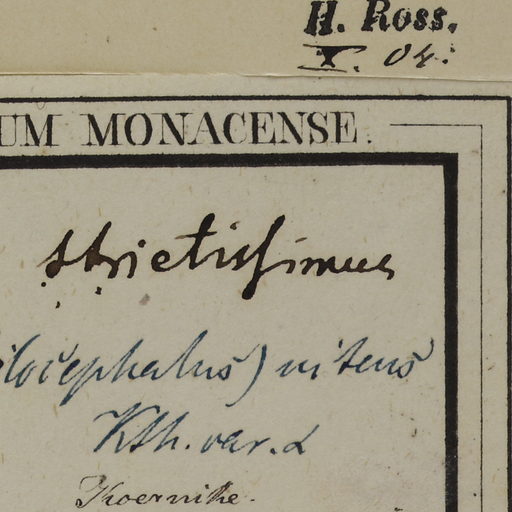 H. Ross.
X. 04.
UM MONACENSE.
strictissimus
ilocephalus) nitens
Kth. var. α
Koernike.